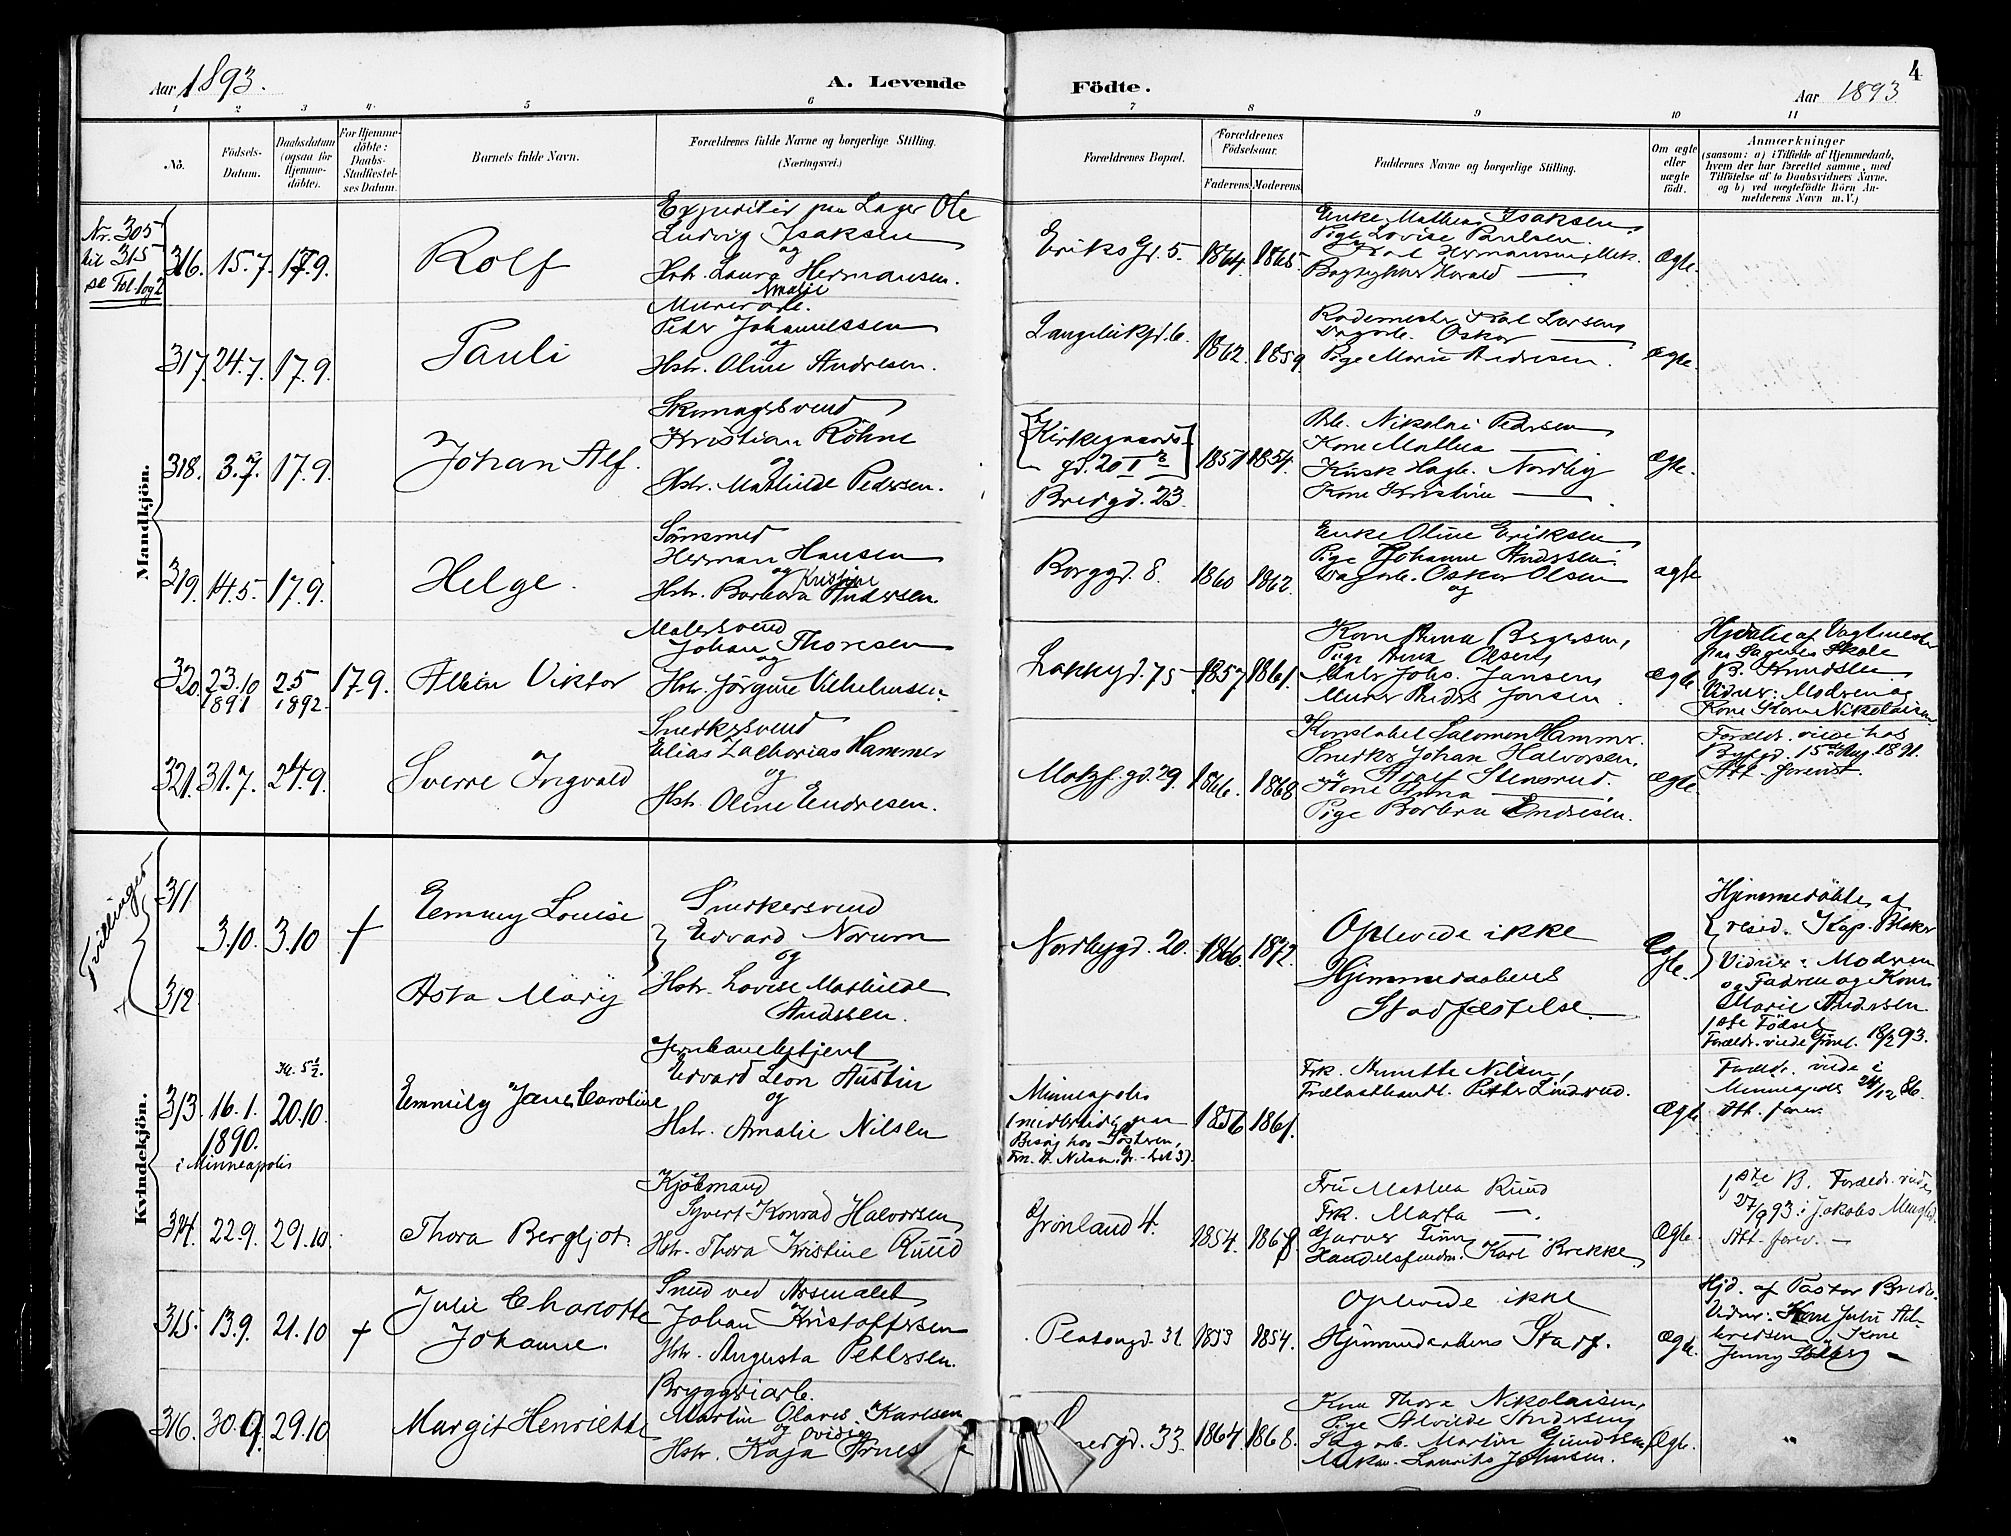 Aar 1893.
A. Levende Födte.
Aar 1893
4
1 2 3 4. 5 6 7 8 9 10 11
No.
Födsels-Datum.
Daabsdatum (ogsaa for Hjemme-döbte).
For Hjemme-döbte: Daabs-Stadfæstel-ses Datum.
Barnets fulde Navn.
Forældrenes fulde Navne og borgerlige Stilling. (Næringsvei.)
Forældrenes Bopæl.
Forældrenes Födselsaar.
Faderens. Moderens.
Faddernes Navne og borgerlige Stilling.
Om ægte eller uægte födt.
Anmærkninger
(saasom: a) i Tilfælde af Hjemmedaab, hvem der har forrettet samme, med Tilföielse af to Daabsvidners Navne, og b) ved uægtefödte Börn An-melderens Navn m. V.)
Mandkjön.
Nr. 305
til 315
se Fol. 1 og 2
316. 15.7. 17.9.
Rolf
Expeditør paa Lager Ole
Ludvig Isaksen
og
Hstr. Laura Hermansen.
Amalie
Eriks Gd. 5.
1864. 1865.
Enke Mathea Isaksen,
Pige Lovise Paulsen.
Karl Hermansen, Mek.
Bagsvend Harald —
Ægte.
317. 24.7. 17.9.
Pauli
Murerarb.
Peder Johannessen
og
Hstr. Oline Andresen.
Langeliksgd. 6.
1862. 1859
Rodemester Karl Larsen,
Dagarb. Oskar —
Pige Marie Andresen.
Ægte.
318. 3.7. 17.9.
Johan Alf.
Skomagersvend
Kristian Röhne
og
Hstr. Mathilde Pedersen.
Kirkegaards
gd. 20 I
Bredgd. 23.
1857 1854.
Arb. Nikolai Pedersen
Kone Mathea —
Kusk Nordby
Kone Kristine —
Ægte.
319. 14.5. 17.9.
Helge.
Sömsmed
Herman Hansen
og
Hstr. Barbara Kristine Andersen.
Borggd. 8.
1860 1862.
Enke Oline Eriksen
Pige Johanne Anderssen.
Dagarb. Oskar Olsen
og
ægte
320. 23.10 1891
25 1892.
17.9.
Albin Viktor
Malersvend
Johan Thoresen
og
Hstr. Jörgine Vilhelmsen.
Lakkegd. 75
1857. 1861.
Kone Anna Bergersen,
Pige Anna Olsen,
Maler Johs. Jansen,
Murer Anders Jonsen.
Ægte
Hjdöbt af Vagtmester
paa Sagenes Skole
B. Knudsen.
Vidner: Modren og
Kone Karen Nikolaisen.
321. 31.7. 24.9.
Sverre Ingvald
Snedkersvend
Elias Zacharias Hammer
og
Hstr. Oline Endresen.
Motzf. gd. 29.
1866. 1868
Konstabel Salomon Hammer.
Snedker Johan Halvorsen,
Adolf Stensrud.
Kone Anna —
Pige Barbra Endresen.
Ægte.
Foreldr. viede hos
Byfgd. 15de Aug. 1891.
Att. forevist.
Kvindekjön.
Tvillinger
311
312
3.10. 3.10 †
Emmy Louise
Asta Mary
Snedkersvend
Edvard Norum
og
Hstr. Lovise Mathilde
Anderssen.
Nordbygd. 20.
1866. 1872.
Oplevede ikke
Hjemmedaabens
Stadfæstelse.
Ægte.
Hjemmedöbte af
resid. Kap. Blaker
Vidner: Modren
og Fadren og Kone
Marie Andersen.
1ste Födsel
Foreldr. viede Grönl. 18/2 93.
313. 16.1. 1890. i Minneapolis
Kl. 5½
20.10.
Emmily Jane Caroline
Jernbanebetjent
Edvard Leon Austin
og
Hstr. Amalie Nilsen
Minneapolis
(midlertidig paa
Besøg hos Søsteren,
Frk. A. Nilsen, 3).
1856 1861.
Frk. Annette Nilsen,
Trælasthandl. Petter Lindrud.
Ægte.
Foreldr. viede i
Minneapolis 24/12 86.
Att. forev.
314. 22.9. 29.10.
Thora Bergljot.
Kjöbmand
Syvert Konrad Halvorsen
Hstr. Thora Kristine Ruud
Grönland 4.
1854. 1868.
Fru Mathea Ruud
Frk. Marta —.
Garver Finn —
Handelsfuldm. Karl Brekke,
Ægte.
1ste B. Foreldr. viede
27/9 93 i Jakobs Menighed.
Att. forev. —
315. 13.9. 21.10 †
Julie Charlotte
Johanne.
Smed ved Arsenalet
Johan Kristoffersen
Hstr. Augusta Pettersen.
Platougd. 31
1853 1854.
Oplevede ikke
Hjemmedaabens Stadf.
Ægte.
Hjd. af Pastor Brede.
Vidner: Kone Julie Al-
bretsen og Kone
Jenny Solberg —
316. 30.9. 29.10
Margit Henriette
Bryggeriarb.
Martin Olaves Karlsen
og
Hstr. Kaja Ovidia
gd. 33.
1864. 1868.
Kone Thora Nikolaisen,
Pige Alvilde Andersen,
Dagarb. Martin Gundersen
Mekan. Laurits Johnsen.
Ægte.